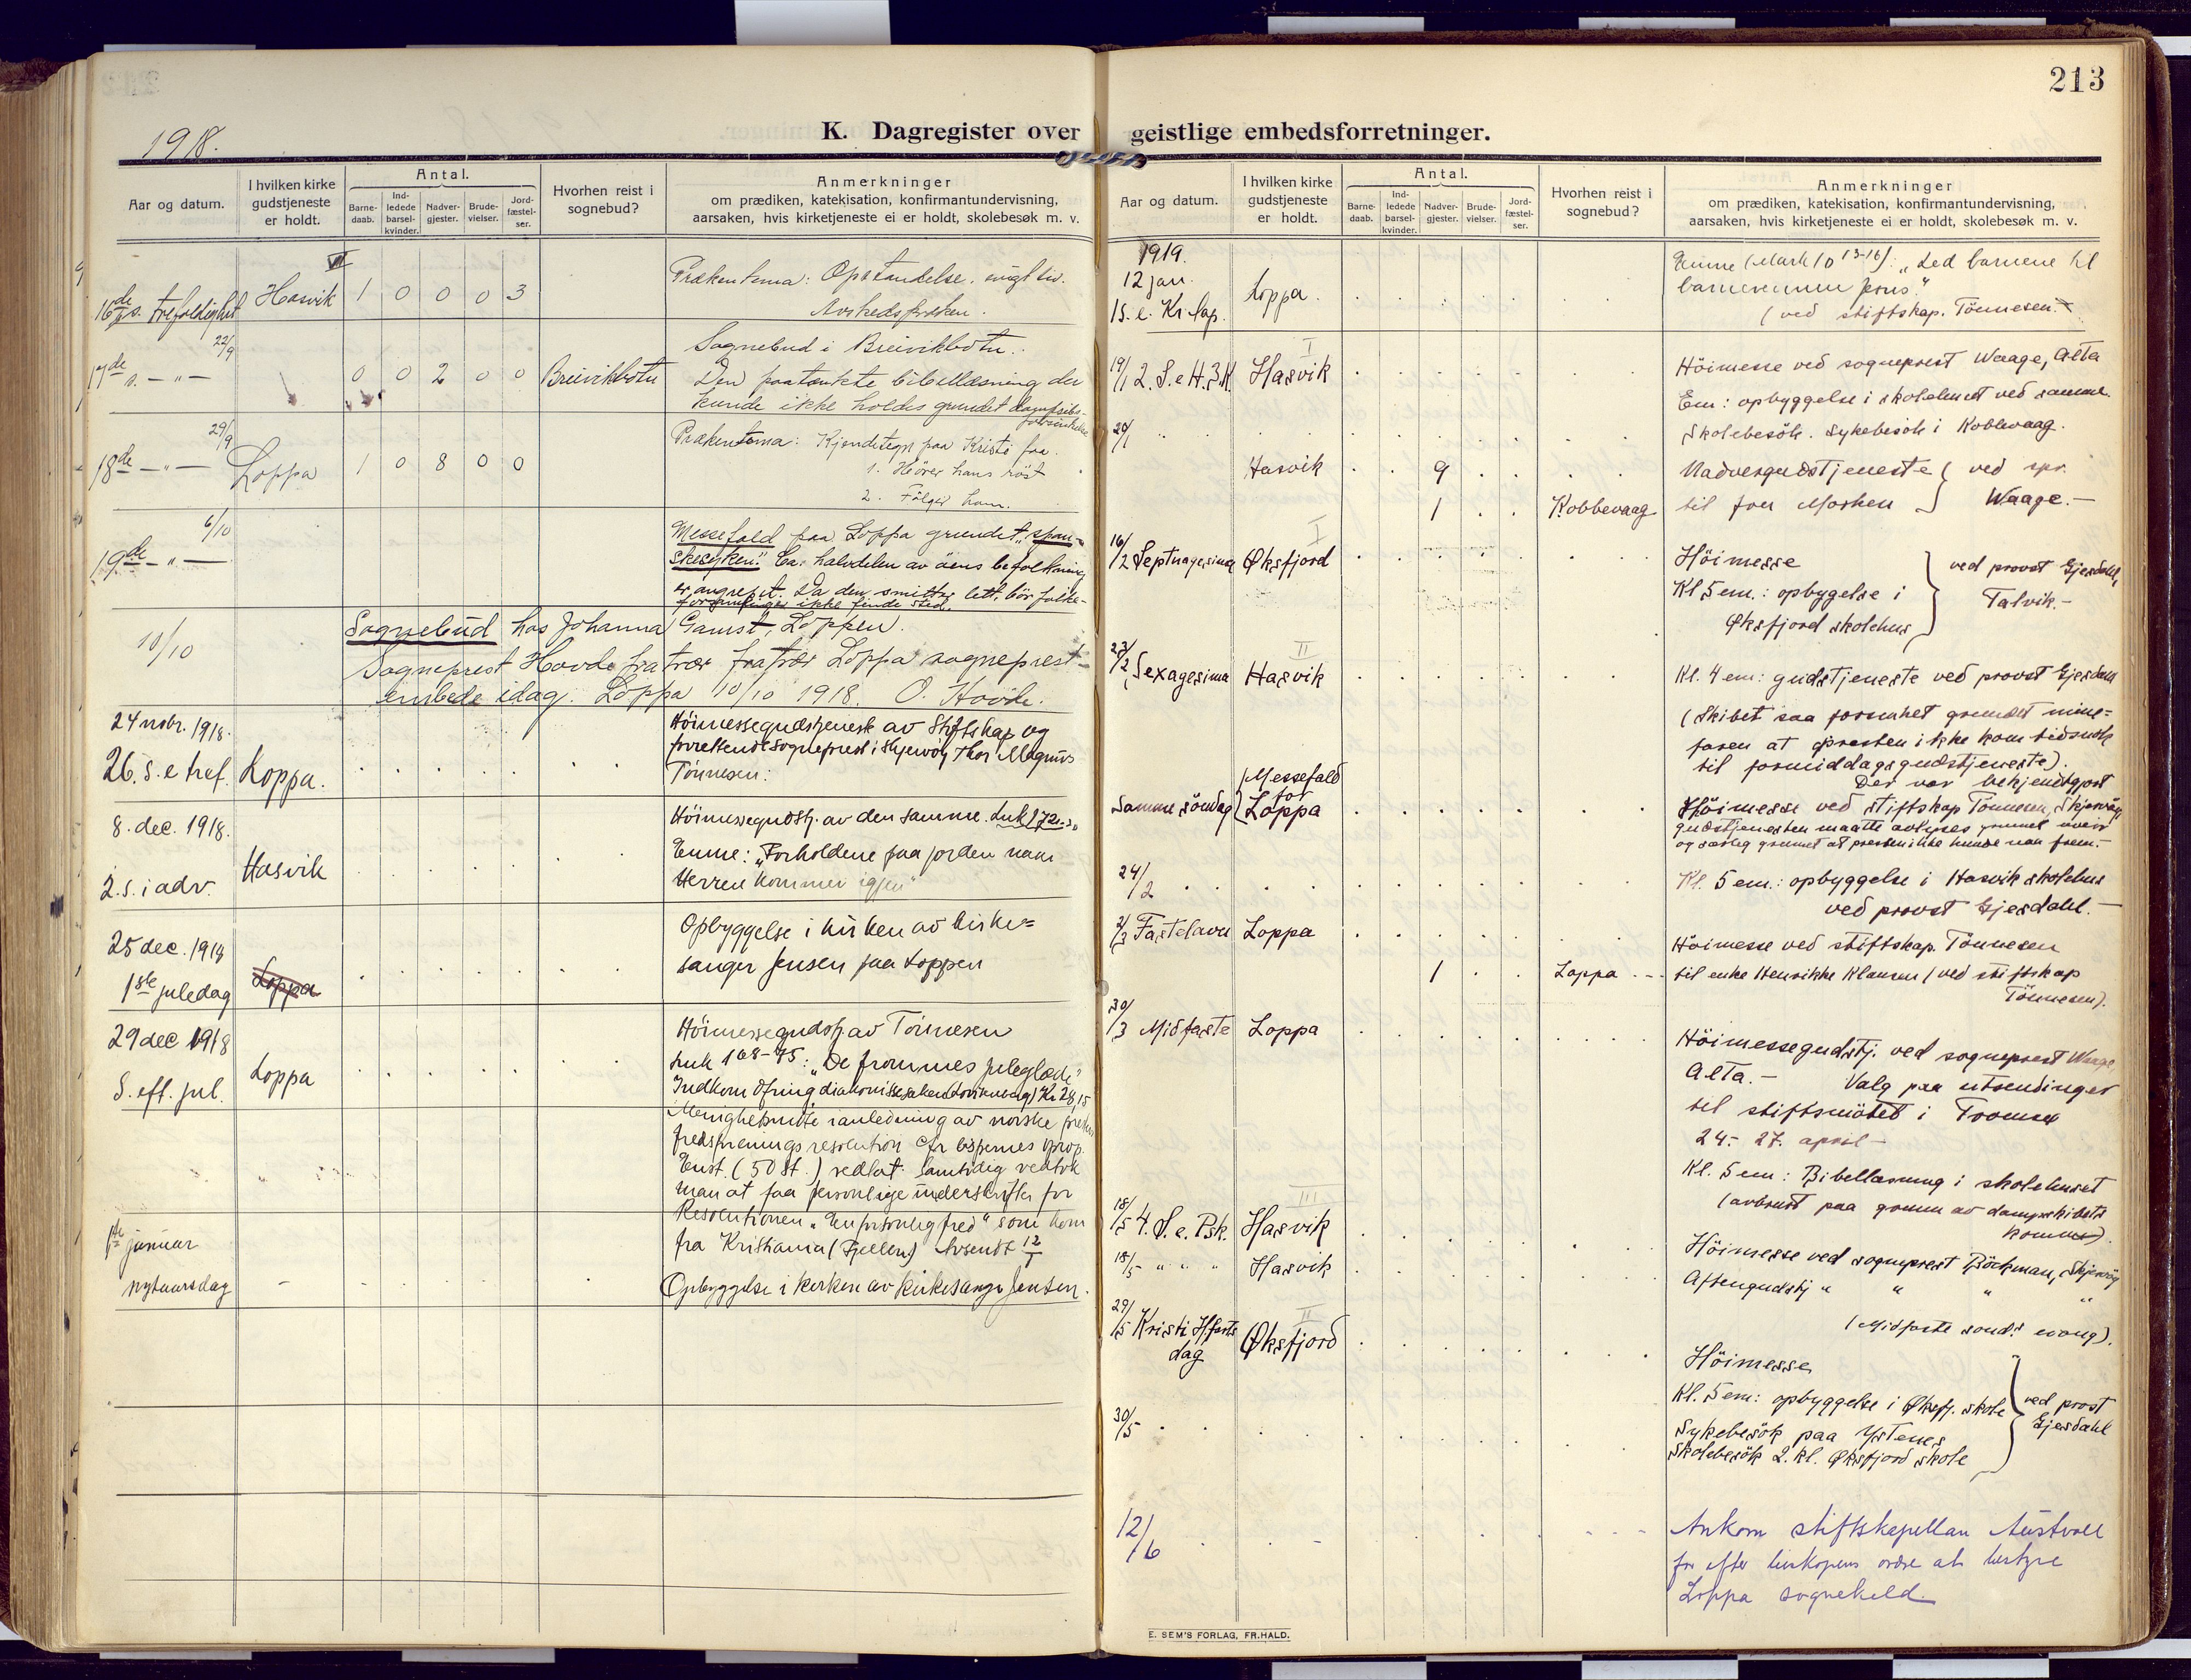 213
1918.
K. Dagregister over geistlige embedsforretninger.
Aar og datum.
I hvilken kirke gudstjeneste er holdt.
Antal.
Barne-daab.
Ind-ledede barsel-kvinder.
Nadver-gjester.
Brude-vielser.
Jord-fæstel-ser.
Hvorhen reist i sognebud?
Anmerkninger
om prædiken, katekisation, konfirmantundervisning,
aarsaken, hvis kirketjeneste ei er holdt, skolebesøk m. v.
VII
16de s. trefoldighet Hasvik 1 0 0 0 3
Prækentema: Opstandelse. evigt liv.
Avskedspræken.
22/9
17de s. — " — 0 0 2 0 0 Breivikbotn
Sognebud i Breivikbotn.
Den paatænkte bibellæsning der
kunde ikke holdes grundet dampskibs-
forsinkelse
29/9
18de — " — Loppa 1 0 8 0 0
Prækentema: Kjendetegn paa Kristi faa.
1. Hører hans röst
2. Følger ham.
6/10
19de — " —
Messefald paa Loppa grundet "span-
skesyken". Ca. halvdelen av öens befolkning
er angrepet. Da den smitter lett, bör folke-
forsamlinger ikke finde sted.
10/10 Sognebud hos Johanna Gamst, Loppen.
Sogneprest Hovde fratrær fratrær Loppa sogneprest-
embede idag. Loppa 10/10 1918. O. Hovde.
24 nobr. 1918.
26. s. e tref. Loppa.
Höimessegudstjeneste av Stiftskap og
forrettende sogneprest i Skjervöy Thor Magnus
Tönnesen:
8. dec. 1918.
2. s. i adv. Hasvik
Höimessegudstj. av den samme. Luk 17
Emne: "Forholdene paa jorden naar
Herren kommer igjen"
25 dec. 1918
1ste juledag Loppa
Opbyggelse i kirken av kirke=
sanger Jensen paa Loppen
29 dec 1918
S. eft. jul. Loppa
Höimessegudstj. av Tönnesen
Luk 1 68-75: "De frommes juleglæde"
Indkom Ofring diakonissesaken Kr 28,15
Menighetsmöte i anledning av norske
fredsforenings resolution
Enst. (50 st.) vedtat. Samtidig vedtok
man at faa personlige underskrifter for
Resolutionen "En forsonlig fred" som kom
fra Kristiania (Fjellen) Avsendt 12/1
1ste januar
nytaarsdag
Opbyggelse i kirken av kirkesanger Jensen.
Aar og datum.
I hvilken kirke gudstjeneste er holdt.
Antal.
Barne-daab.
Ind-ledede barsel-kvinder.
Nadver-gjester.
Brude-vielser.
Jord-fæstel-ser.
Hvorhen reist i sognebud?
Anmerkninger
om prædiken, katekisation, konfirmantundervisning,
aarsaken, hvis kirketjeneste ei er holdt, skolebesøk m. v.
1919.
12 jan.
1 s. e. Kr. aap. Loppa.
Emne (Mark 10 13-16): "Led barnene til
barnevennen Jesus."
(ved stiftskap. Tönnesen.
I
19/1 2. S. e H. 3 K. Hasvik
Höimesse ved sogneprest Waage, Alta
Em: opbyggelse i skolehuset ved samme.
20/1 "
Skolebesök. Sykebesök i Kobbevaag.
Hasvik 9
Nadvergudstjeneste } ved spr.
1 Kobbevaag
til fru Morken } Waage. —
I
16/2 Septuagesima Øksfjord
Höimesse
Kl 5 em.: opbygelse i
Øksfjord skolehus
ved provst Gjesdahl,
Talvik. —
II
23/2 Sexagesima Hasvik
Kl. 4 em: gudstjeneste ved provst Gjesdahl
(Skibet saa forsinket grundet mine=
faren at presten ikke kom tidsnok
til formiddagsgudstjeneste).
Samme söndag (Messefald for Loppa
Der var bekjendtgjort
Höimesse ved stiftskap Tönnesen, Skjervöy
gudstjenesten maatte avlyses grunnet uveir
og særlig grunnet at presten ikke kunde naa frem. —
24/2
Kl. 5 em.: opbyggelse i Hasvik skolehus
ved provst Gjesdahl. —
2/3 Fastelavn Loppa
Höimesse ved stiftskap. Tönnesen
1 Loppa
til enke Henrikke Klausen (ved stiftskap
Tönnesen).
30/3 Midfaste Loppa
Höimessegudstj. ved sogneprest Waage,
Alta. — Valg paa utsendinger
til stiftsmötet i Tromsø
24.- 27. april —
Kl. 5 em: Bibellæsning i skolehuset
(avbrudt paa grunn av dampskibets
komme).
III
18/5 4. S. e. Psk. Hasvik
Höimesse ved sogneprest Böckman, Skjervöy
18/5 " " " Hasvik
Aftengudstj " " " "
(Midfaste sønd.s evang).
II
29/5 Kristi Hfarts
dag Øksfjord
Höimesse
Kl. 5 em: opbyggelse i Øksfj. skole
30/5
Sykebesök paa Ystenes
Skolebesök 2. kl. Øksfjord skole
ved prost
Gjesdahl
12/6
Ankom stiftskapellan Austvoll
for efter biskopens ordre at bestyre
Loppa sognekald.
E. SEM'S FORLAG, FR.HALD.